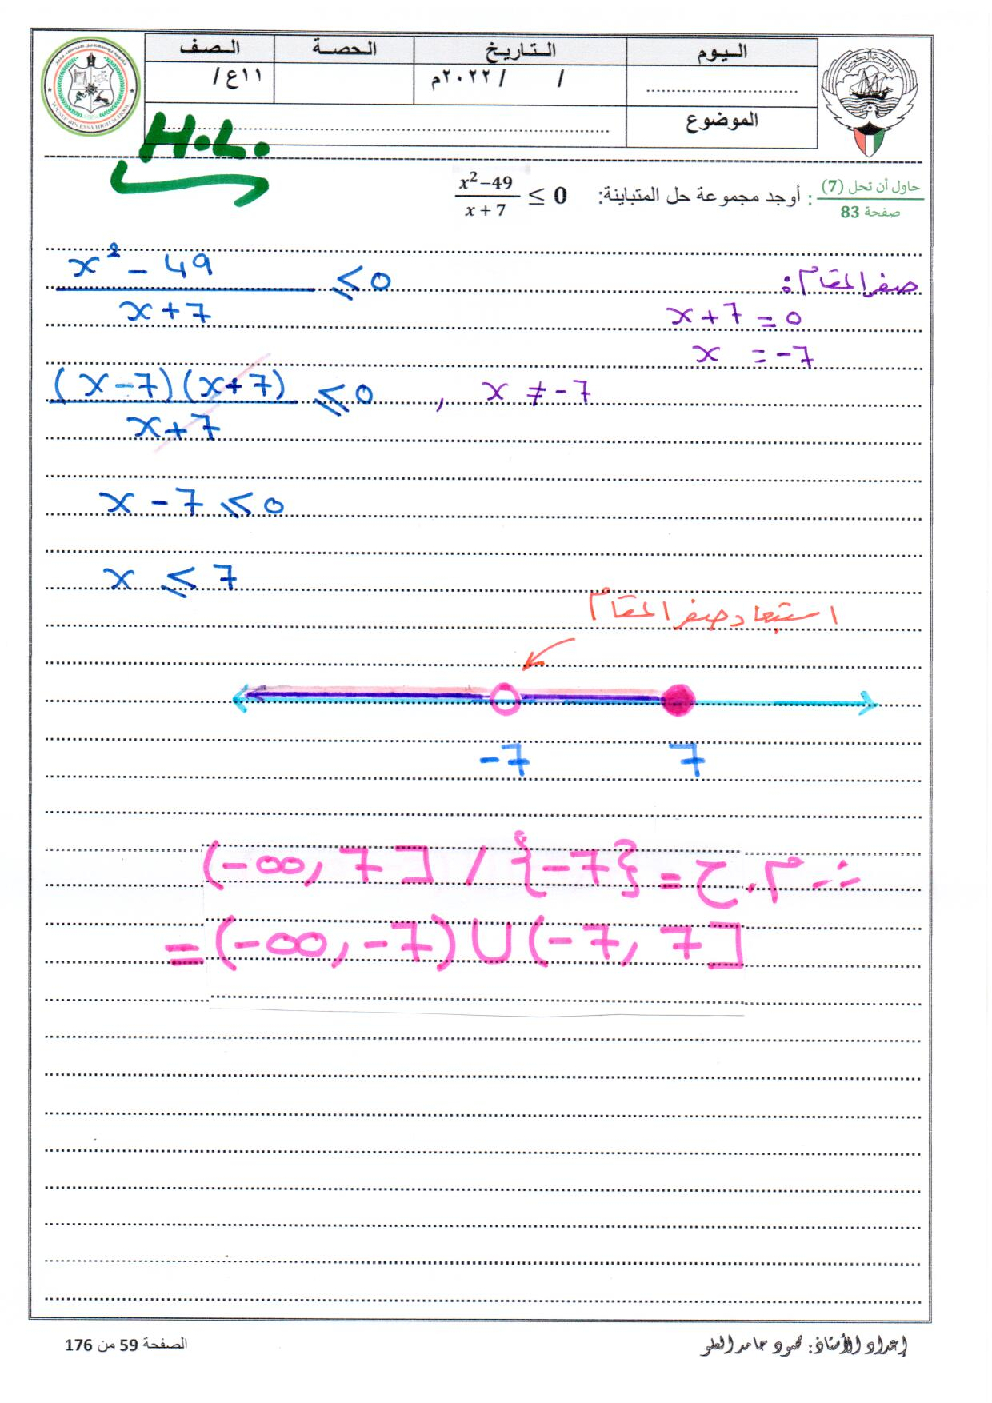 اليوم التاريخ الحصة الصف
/ / ٢٠٢٢م ١١ع/
الموضوع
H.L.
حاول أن تحل (7)
صفحة 83
: أوجد مجموعة حل المتباينة: x²−49 / x + 7 ≤ 0
x² − 49 / x + 7 ≤ 0
صفر المقام:
x + 7 = 0
x = −7
(x − 7)(x + 7) / x + 7 ≤ 0 , x ≠ −7
x − 7 ≤ 0
x ≤ 7
استبعاد صفر المقام
−7 7
∴ م.ح = (−∞, 7] / {−7}
= (−∞, −7) ∪ (−7, 7]
إعداد الأستاذ: محمود حامد
الصفحة 59 من 176